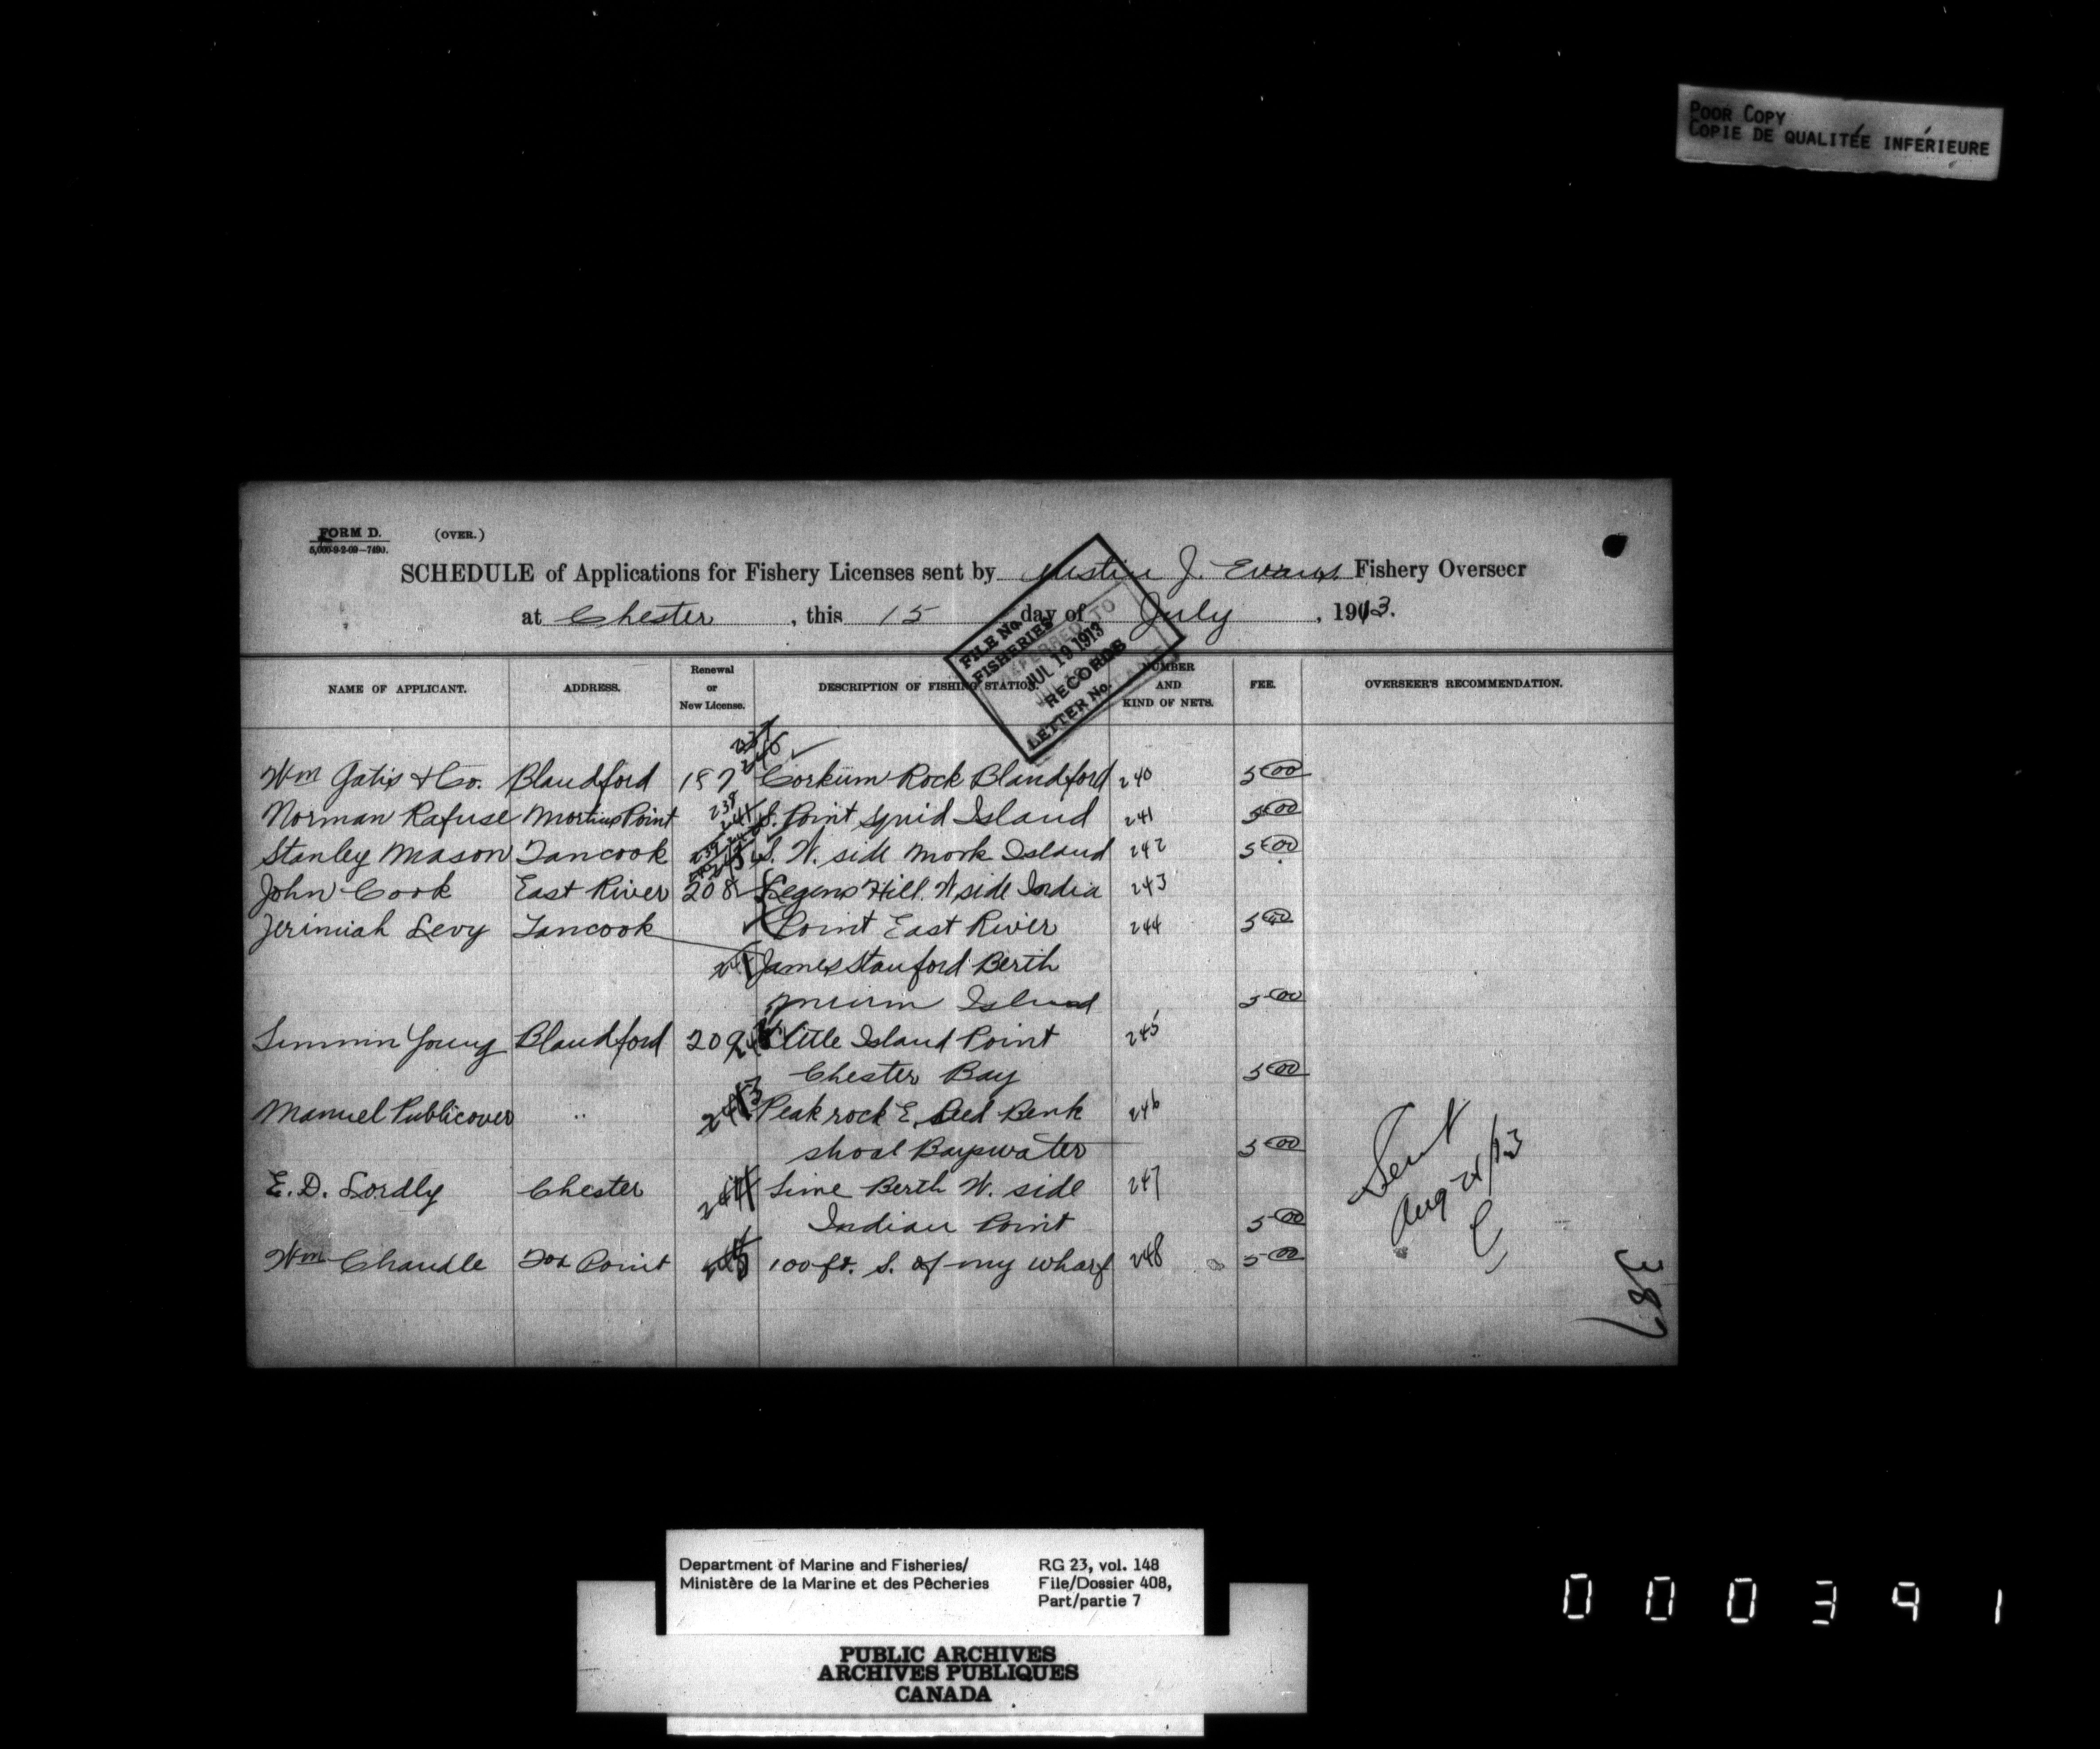 POOR COPY
COPIE DE QUALITÉE INFÉRIEURE
FORM D. (OVER.)
5,000-9-2-09—7490.
SCHEDULE of Applications for Fishery Licenses sent by J. Evans Fishery Overseer
at Chester, this 15 day of July, 1913.
FILE No.
FISHERIES
REFERRED TO
JUL 19 1913
RECORDS
LETTER No.
NAME OF APPLICANT. ADDRESS. Renewal or New License. DESCRIPTION OF FISHING STATION. NUMBER AND KIND OF NETS. FEE. OVERSEER'S RECOMMENDATION.
Wm Gatis & Co. Blandford 187 Corkum Rock Blandford 240 5 00
Norman Rafuse Martins Point S. Point Squid Island 241 5 00
Stanley Mason Tancook S. W. side Mork Island 242 5 00
John Cook East River 208 Hill. W side India 243
Jerimiah Levy Tancook Point East River 244 5 00
James Stanford Berth
Island 5 00
Young Blandford 209 Little Island Point 245
Chester Bay 5 00
Manuel Publicover " Peak rock E. Reed Benk 246
shoal Bayswater 5 00
E. D. Lordly Chester Lime Berth W. side 247
Indian Point 5 00
Wm Chandle Fox Point 100 ft. S. of my wharf 248 5 00
Sent
Aug 21/13
C
387
Department of Marine and Fisheries/
Ministère de la Marine et des Pêcheries
RG 23, vol. 148
File/Dossier 408,
Part/partie 7
PUBLIC ARCHIVES
ARCHIVES PUBLIQUES
CANADA
000391